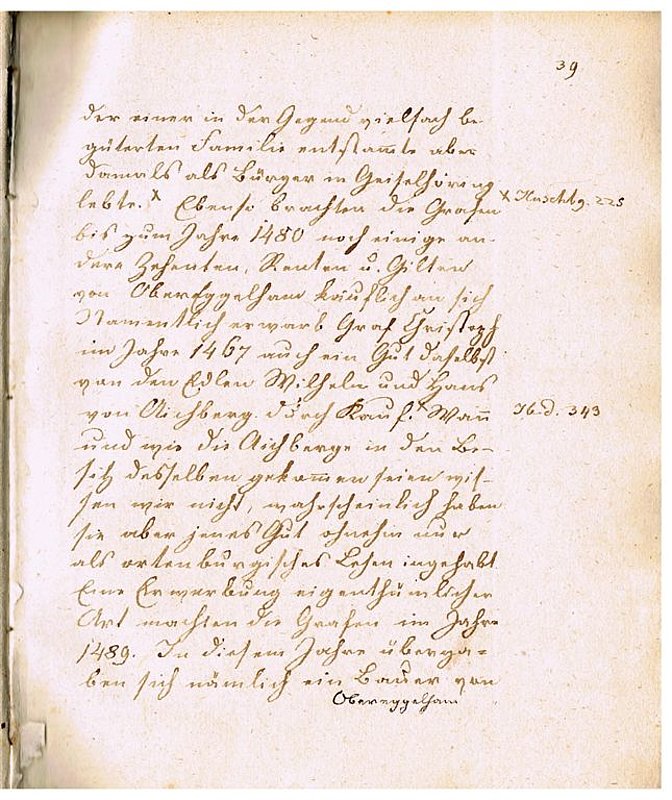 39
der einer in der Gegend vielfach be-
güterten Familie entstam̅te aber
damals als Bürger in Geiselhöring
lebte. x Ebenso brachten die Grafen
x Huschbg. 225
bis zum Jahre 1480 noch einige an-
dere Zehenten, Renten u. Gilten
von Obereggelham käuflich an sich
Namentlich erwarb Graf Christoph
im Jahre 1467 auch ein Gut daselbst
von den Edlen Wilhelm und Hans
von Aichberg durch Kauf. x Wan̅
Ibd. 343
und wie die Aichberge in den Be-
sitz desselben gekom̅en seien wis-
sen wir nicht, wahrscheinlich haben
sie aber jenes Gut ohnehin nur
als ortenburgisches Lehen ingehabt
Eine Erwerbung eigenthümlicher
Art machten die Grafen im Jahre
1489. In diesem Jahre überga-
ben sich nämlich ein Bauer von
Obereggelham